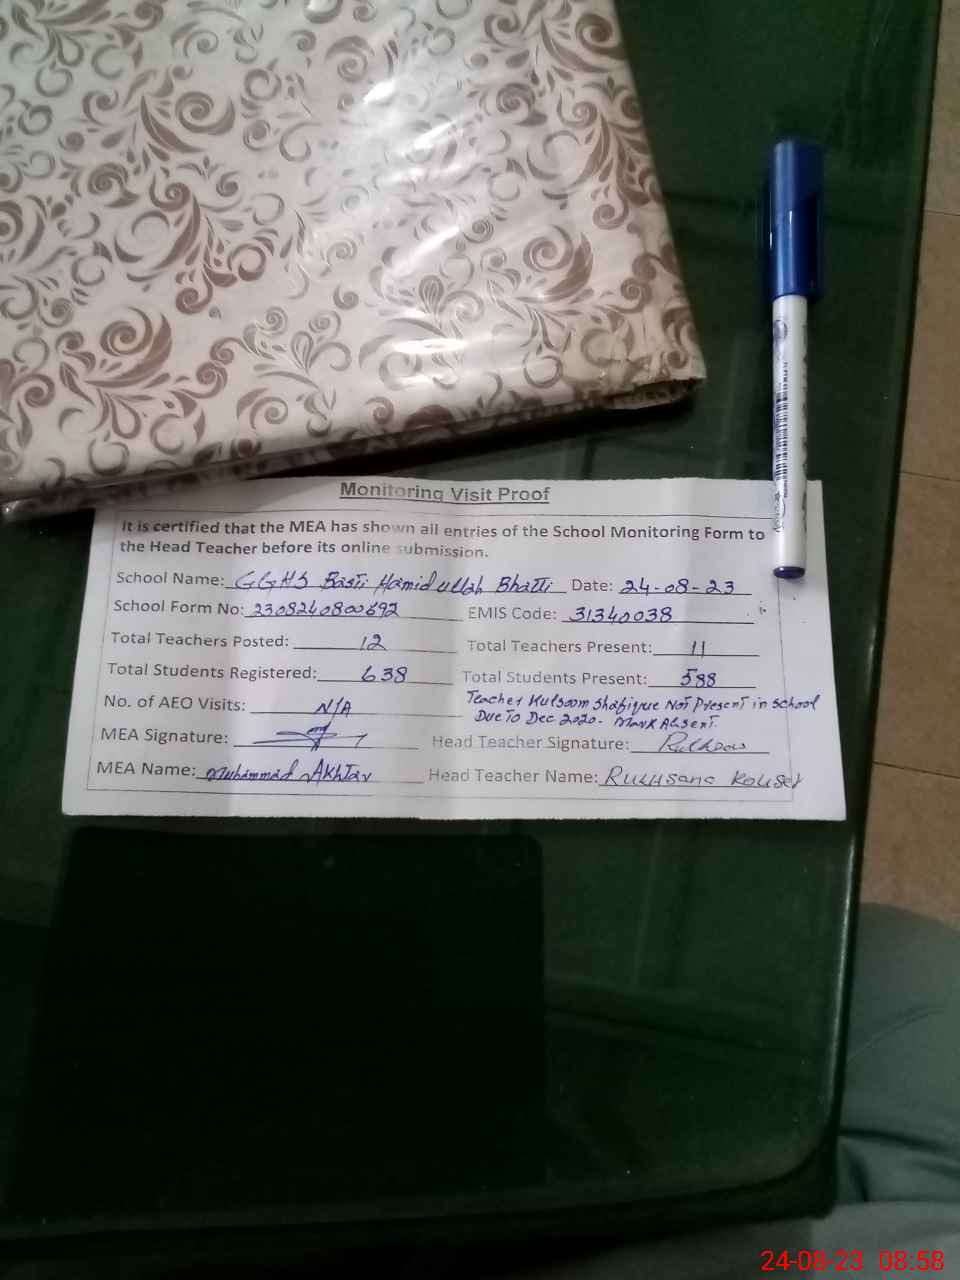 Monitoring Visit Proof
It is certified that the MEA has shown all entries of the School Monitoring Form to
the Head Teacher before its online submission.
School Name: GGHS Basti Hamidullah Bhatti Date: 24-08-23
School Form No: 2308240800692 EMIS Code: 31340038
Total Teachers Posted: 12 Total Teachers Present: 11
Total Students Registered: 638 Total Students Present: 588
No. of AEO Visits: N/A Teacher Kulsoom Shafique Not Present in school
Due To Dec 2020. Mark Absent.
MEA Signature: Head Teacher Signature:
MEA Name: Muhammad Akhtar Head Teacher Name: Rukhsana Kousar
24-08-23 08:58